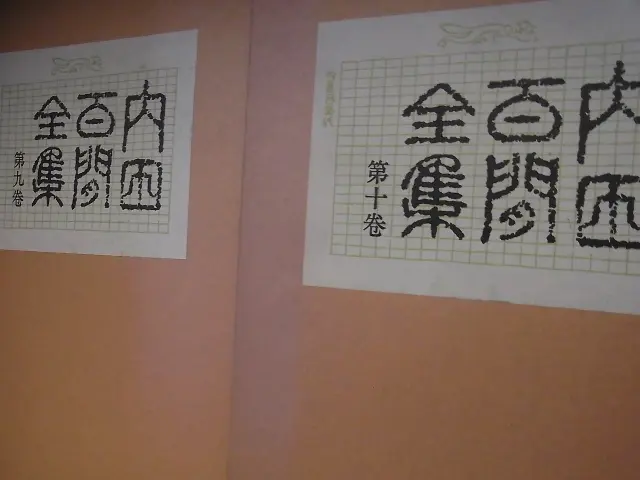 内田
百閒
全集
第九卷
内田
百閒
全集
第十卷